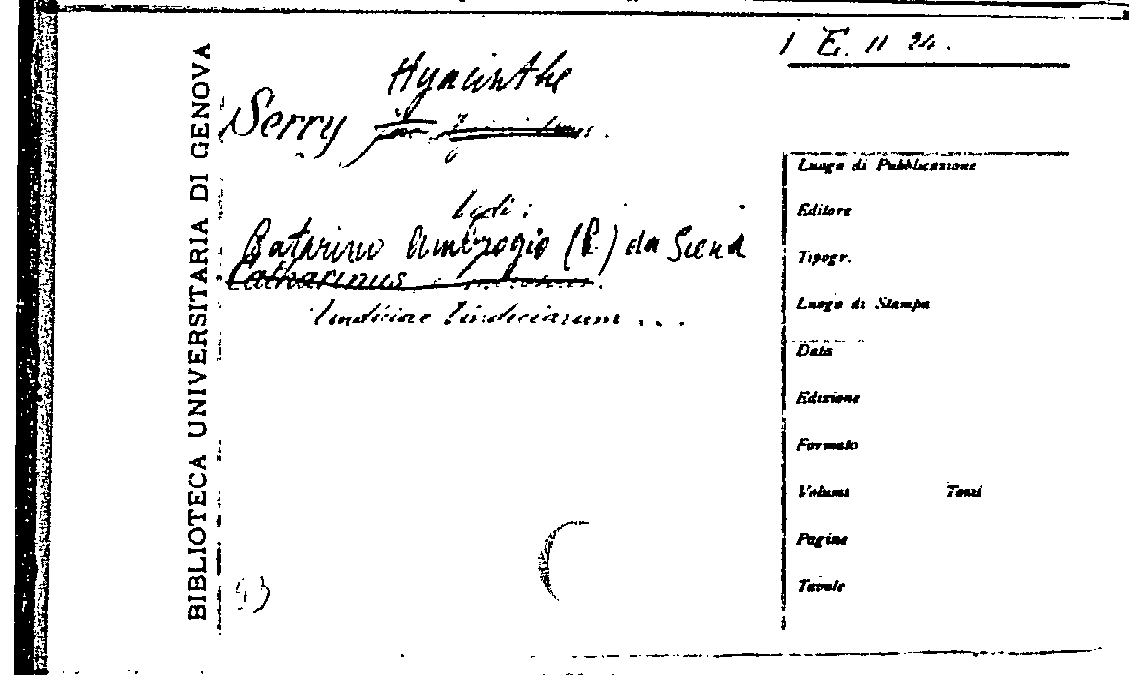 1 E. 11 24.
Hyacinthe
Serry
BIBLIOTECA UNIVERSITARIA DI GENOVA
Vedi:
Catarino Ambrogio (P.) da Siena
Catharinus
Vindiciae Vindiciarum ...
93
Luogo di Pubblicazione
Editore
Tipogr.
Luogo di Stampa
Data
Edizione
Formato
Volumi Tomi
Pagine
Tavole